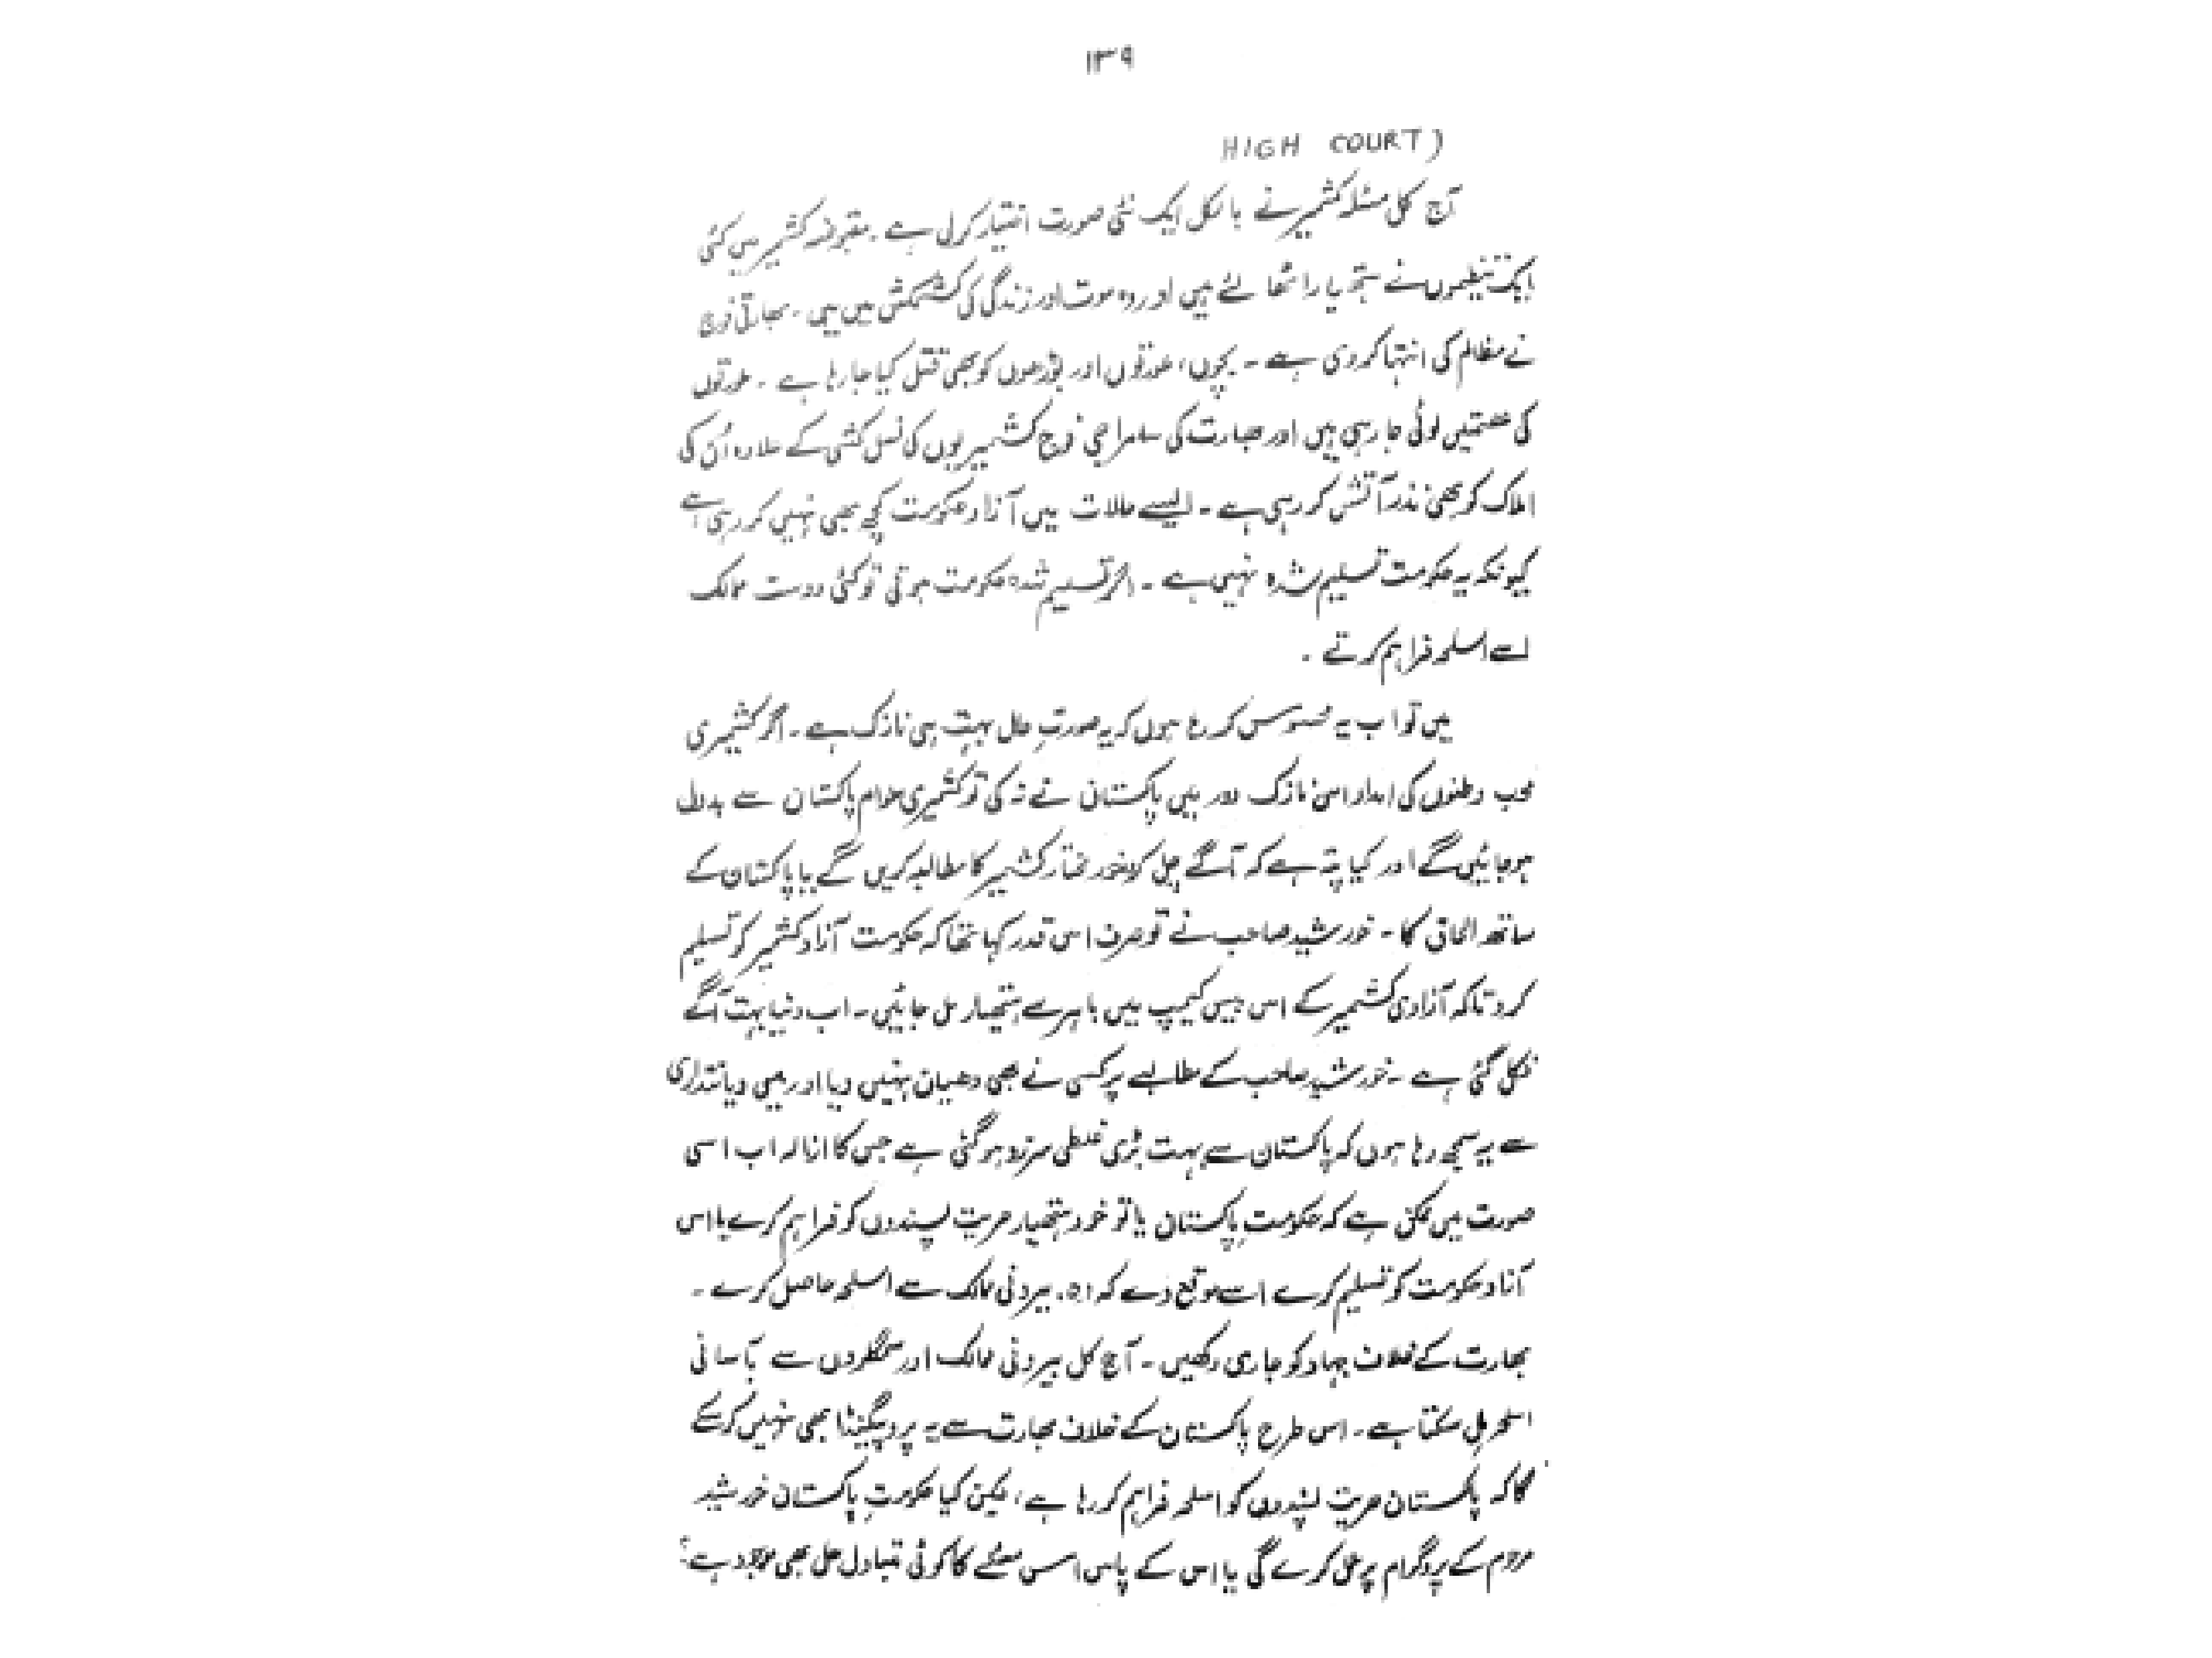 ۱۳۹
HIGH COURT)
آج کل مسئلہ کشمیر نے بالکل ایک نئی صورت اختیار کرلی ہے۔ مقبوضہ کشمیر میں کئی
ایک تنظیموں نے ہتھیار اٹھا لئے ہیں اور وہ موت اور زندگی کی کشمکش میں ہیں۔ بھارتی فوج
نے مظالم کی انتہا کر دی ہے۔ بچوں، عورتوں اور بوڑھوں کو بھی قتل کیا جا رہا ہے۔ عورتوں
کی عصمتیں لوٹی جا رہی ہیں اور بھارت کی سامراجی فوج کشمیریوں کی نسل کشی کے علاوہ اُن کی
املاک کو بھی نذر آتش کر رہی ہے۔ ایسے حالات میں آزاد حکومت کچھ بھی نہیں کر رہی ہے
کیونکہ یہ حکومت تسلیم شدہ نہیں ہے۔ اگر تسلیم شدہ حکومت ہوتی تو کئی دوست ممالک
اسے اسلحہ فراہم کرتے۔
میں تو اب یہ محسوس کر رہا ہوں کہ یہ صورتِ حال بہت ہی نازک ہے۔ اگر کشمیری
محب وطنوں کی امداد اس نازک دور میں پاکستانی نے نہ کی تو کشمیری عوام پاکستان سے بددل
ہو جائیں گے اور کیا پتہ ہے کہ آگے چل کر خود مختار کشمیر کا مطالبہ کریں گے یا پاکستان کے
ساتھ الحاق کا۔ خورشید صاحب نے تو صرف اسی قدر کہا تھا کہ حکومت آزاد کشمیر کو تسلیم
کر دو تاکہ آزادی کشمیر کے اس بیس کیمپ میں باہر سے ہتھیار مل جائیں۔ اب دنیا بہت آگے
نکل گئی ہے۔ خورشید صاحب کے مطالبے پر کسی نے بھی دھیان نہیں دیا اور میں دیانتداری
سے یہ سمجھ رہا ہوں کہ پاکستان سے بہت بڑی غلطی سرزد ہو گئی ہے جس کا ازالہ اب اسی
صورت میں ممکن ہے کہ حکومتِ پاکستان یا تو خود ہتھیار حریت پسندوں کو فراہم کرے یا اس
آزاد حکومت کو تسلیم کرے اسے موقع دے کہ وہ بیرونی ممالک سے اسلحہ حاصل کرے۔
بھارت کے خلاف جہاد کو جاری رکھیں۔ آج کل بیرونی ممالک اور سمگلروں سے بآسانی
اسلحہ مل سکتا ہے۔ اس طرح پاکستان کے خلاف بھارت سے یہ پروپیگنڈا بھی نہیں کر سکے
گا کہ پاکستان حریت پسندوں کو اسلحہ فراہم کر رہا ہے، لیکن کیا حکومتِ پاکستان خورشید
مرحوم کے پروگرام پر عمل کرے گی یا اس کے پاس اس مسئلے کا کوئی متبادل حل بھی موجود ہے؟